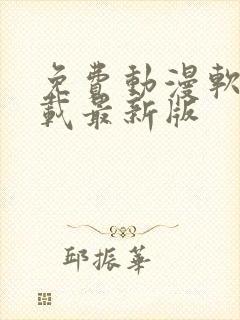 免費動漫軟
載最新版
邱振華